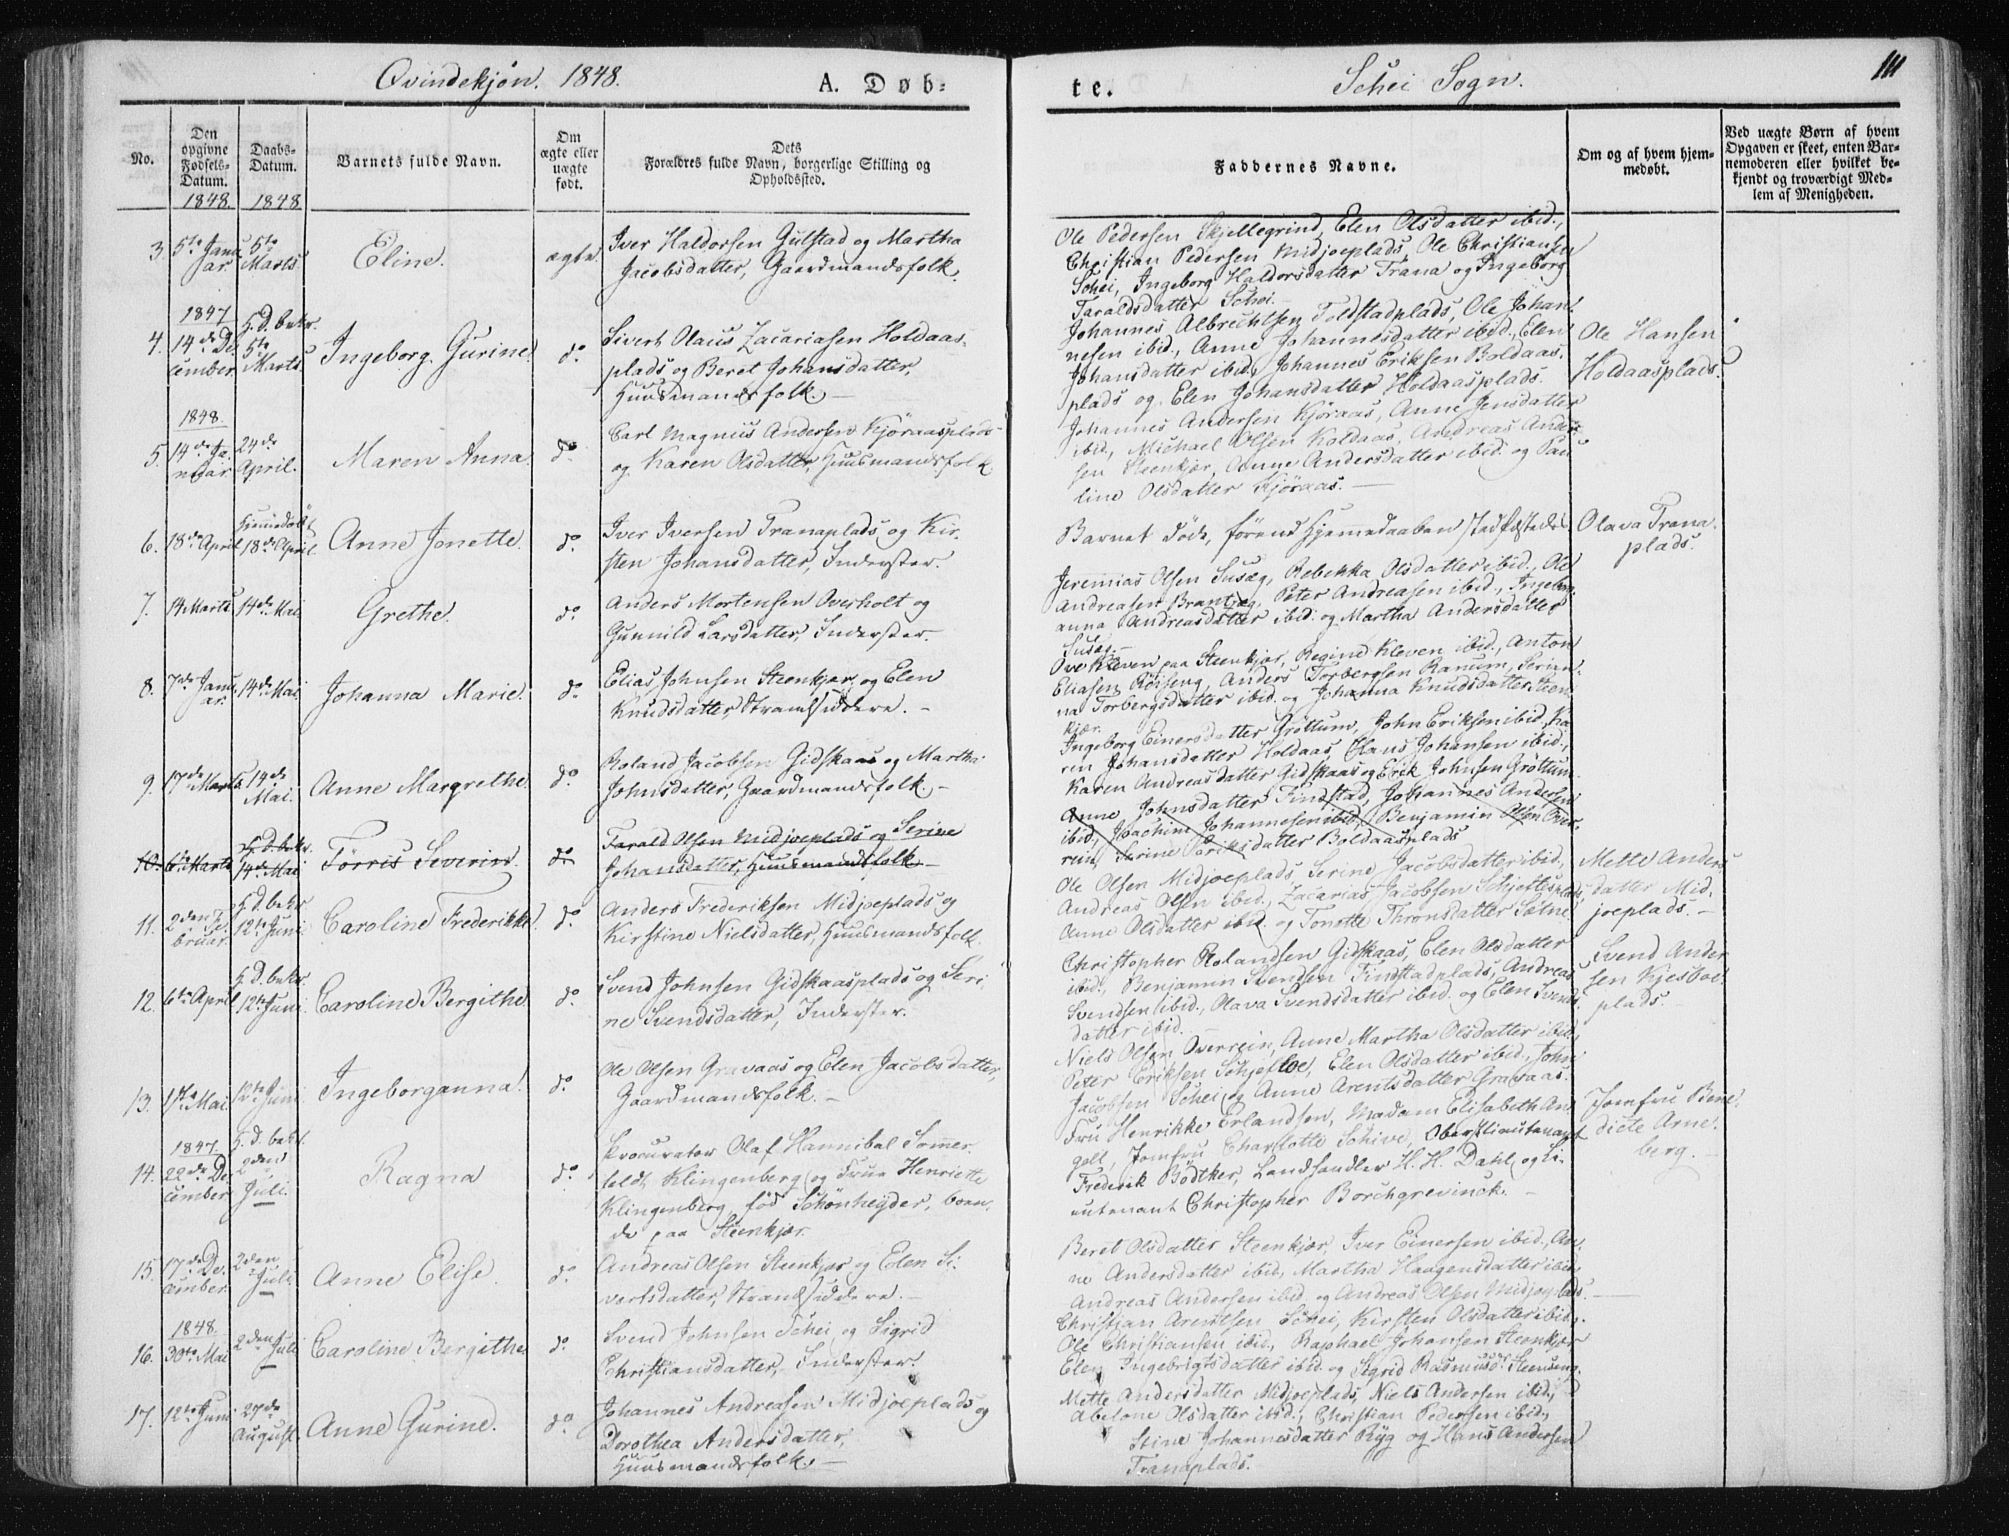 Qvindekjøn. 1848. A. Døb-
te. Schei Sogn. 111
No.
Den opgivne Fødsels-Datum.
Daabs-Datum.
Barnets fulde Navn.
Om ægte eller uægte født.
Dets Forældres fulde Navn, borgerlige Stilling og Opholdssted.
Faddernes Navne.
Om og af hvem hjem-
medøbt.
Ved uægte Børn af hvem
Opgaven er skeet, enten Bar-
nemoderen eller hvilket be-
kjendt og troværdigt Med-
lem af Menigheden.
1848. 1848.
3. 5te Janu
ar. 5te
Marts Eline. ægte.
Iver Haldorsen Gulstad og Martha
Jacobsdatter, Gaardmandsfolk.
Ole Pedersen Skjellegrind, Elen Olsdatter ibid.,
Christian Pedersen Midjoeplads, Ole Christiansen
Schei, Ingeborg Haldorsdatter Trana og Ingeborg
Taraldsdatter Schei.
1847
4. 14de De
cember. H. D. bekr.
5te
Marts. Ingeborg Gurine. do.
Sivert Olaus Zacariasen Holdaas-
plads og Beret Johansdatter,
Huusmandsfolk.
Johannes Albrechtsen Foldstadplads, Ole Johan-
nesen ibid., Anne Johannesdatter ibid., Elen
Johansdatter ibid., Johannes Eriksen Boldaas-
plads og Elen Johansdatter Holdaasplads.
Ole Hansen
Holdaasplads.
1848.
5. 14de Ja-
nuar. 24de
April. Maren Anna. do.
Carl Magnus Andersen Kjøraasplads
og Karen Olsdatter, Huusmandsfolk
Johannes Andersen Kjøraas, Anne Jensdatter
ibid, Michael Olsen Koldaas, Andreas Ander-
sen Steenkjær, Anne Andersdatter ibid. og Pau
line Olsdatter Kjøraas.
6. 18de April Hjemmedøbt
18de April. Anne Jonette. do.
Iver Iversen Tranaplads og Kir-
sten Johansdatter, Inderster.
Barnet døde, førend Hjemmedaaben stadfæstedes.
Olava Trana-
plads.
7. 14 Marts. 14de Mai Grethe. do.
Anders Mortensen Overholt og
Gunnild Larsdatter, Inderster.
Jeremias Olsen Susæg, Rebekka Olsdatter ibid., Ole
Andreasen Brantzeg, Peter Andreasen ibid., Ingebor-
anna Andreasdatter ibid. og Martha Andersdatter
Susæg.
8. 7de Janu-
ar. 14de Mai Johanna Marie. do.
Elias Johnsen Steenkjær og Elen
Knudsdatter, Strandsiddere.
Ove Kleven paa Steenkjær, Regine Kleven ibid., Anton
Eliasen Røiseng, Anders Torbergsen Ranum, Serian-
na Torbergsdatter ibid. og Johanna Knudsdatter Steen-
kjær.
9. 17de Marts 14de
Mai. Anne Margrethe. do
Roland Jacobsen Gidskaas og Martha
Johnsdatter, Gaardmandsfolk.
Ingeborg Einersdatter Grøttum, John Eriksen ibid., Ka-
ren Johansdatter Holdaas, Claus Johansen ibid.,
Karen Andreasdatter Gidskaas og Erik Johnsen Grøttum.
10. 6te Marts H. D. bekr.
14de Mai Tørris Severin. do
Tarald Olsen Midjoeplads og Serine
Johansdatter, Huusmandsfolk.
Anne Johnsdatter Findstad, Johannes Andersen
ibid, Joachim Johannesen ibid., Benjamin Olsen Over-
rein, Serine Eriksdatter Boldaasplads
11. 2den Fe-
bruar. H. D. bekr
12te Juni Caroline Frederikke. do.
Anders Frederiksen Midjoeplads og
Kirstine Nielsdatter, Huusmandsfolk.
Ole Olsen Midjoeplads, Serine Jacobsdatter ibid.,
Andreas Olsen ibid., Zacarias Jacobsen Schjefteplads,
Anne Olsdatter ibid. og Tonette Thronsdatter Sætne
Mette Anders-
datter Mid-
joeplads.
12. 6te April H. D. bekr.
12te Juni. Caroline Bergithe do.
Svend Johnsen Gidskaasplads og Seri-
ne Svendsdatter, Inderster.
Christopher Rolandsen Gidskaas, Elen Olsdatter
ibid., Benjamin Svendsen Findstadplads, Andreas
Svendsen ibid., Olava Svendsdatter ibid. og Elen Svends-
datter ibid.
Svend Ander
sen Kjesboe-
plads.
13. 1ste Mai. 12te Juni Ingeborganna. do.
Ole Olsen Gravaas og Elen Jacobsdatter,
Gaardmandsfolk.
Niels Olsen Overrein, Anne Martha Olsdatter ibid.,
Peter Eriksen Schjefloe, Elen Olsdatter ibid., John
Jacobsen Schei og Anne Arentsdatter Gravaas.
1847
14. 22de De-
cember H. D. bekr.
2den
Juli. Ragna do.
Procurator Olaf Hannibal Sommer-
feldt Klingenberg og Frue Henriette
Klingenberg fød Schønheyder, boen-
de paa Steenkjær.
Fru Henrikke Erlandsen, Madam Elisabeth An-
gell, Jomfru Charlotte Schive, Oberstlieutenant
Frederik Bødtker, Landhandler H. H. Dahl og Li-
eutenant Christopher Borchgrevinck.
Jomfru Bene-
dicte Arne-
berg.
15. 17de De-
cember. 2den
Juli Anne Elise. do.
Andreas Olsen Steenkjær og Elen Si-
vertsdatter, Strandsiddere.
Beret Olsdatter Steenkjær, Iver Einersen ibid., An-
ne Andersdatter ibid, Martha Haagensdatter ibid,
Andreas Andersen ibid. og Andreas Olsen Midjoeplads.
1848.
16. 30te Mai 2den Juli Caroline Bergithe. do.
Svend Johnsen Schei og Sigrid
Christiansdatter, Inderster.
Christian Arentsen Schei, Kirsten Olsdatter ibid.,
Ole Christiansen ibid., Raphael Johansen Steenkjær
Elen Ingebrigtsdatter ibid. og Sigrid Rasmusdr. Steenseng.
17. 12te Juni 27de
August. Anne Gurine. do.
Johannes Andreasen Midjoeplads og
Dorothea Andersdatter,
Huusmandsfolk.
Mette Andersdatter Midjoeplads, Niels Andersen ibid.,
Abelone Olsdatter ibid., Christian Pedersen ibid.,
Stine Johannesdatter Ryg og Hans Andersen
Tranaplads.